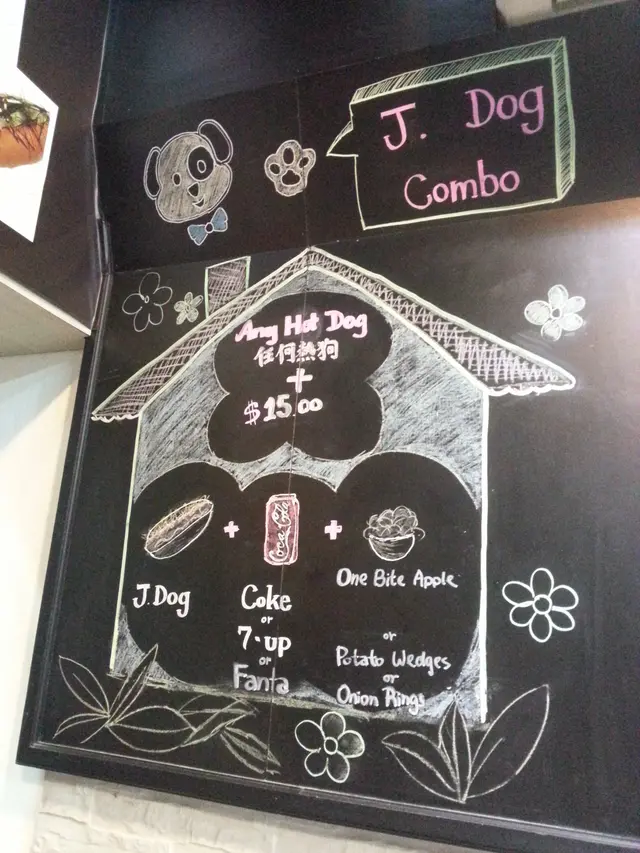 J. Dog
Combo
Any Hot Dog
任何熱狗
+
$15.00
+ +
Coca-Cola
J.Dog
Coke
or
7·up
or
Fanta
One Bite Apple
or
Potato Wedges
or
Onion Rings